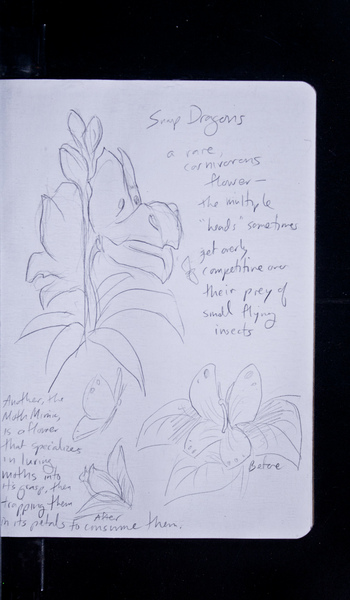 Snap Dragons
a rare
carnivorous
flower—
the multiple
"heads" sometimes
get overly
competitive over
their prey of
small flying
insects
Another, the
Moth Mimic,
is a flower
that specializes
in luring
moths into
its grasp, then
trapping them
in its petals to consume them.
Before
After